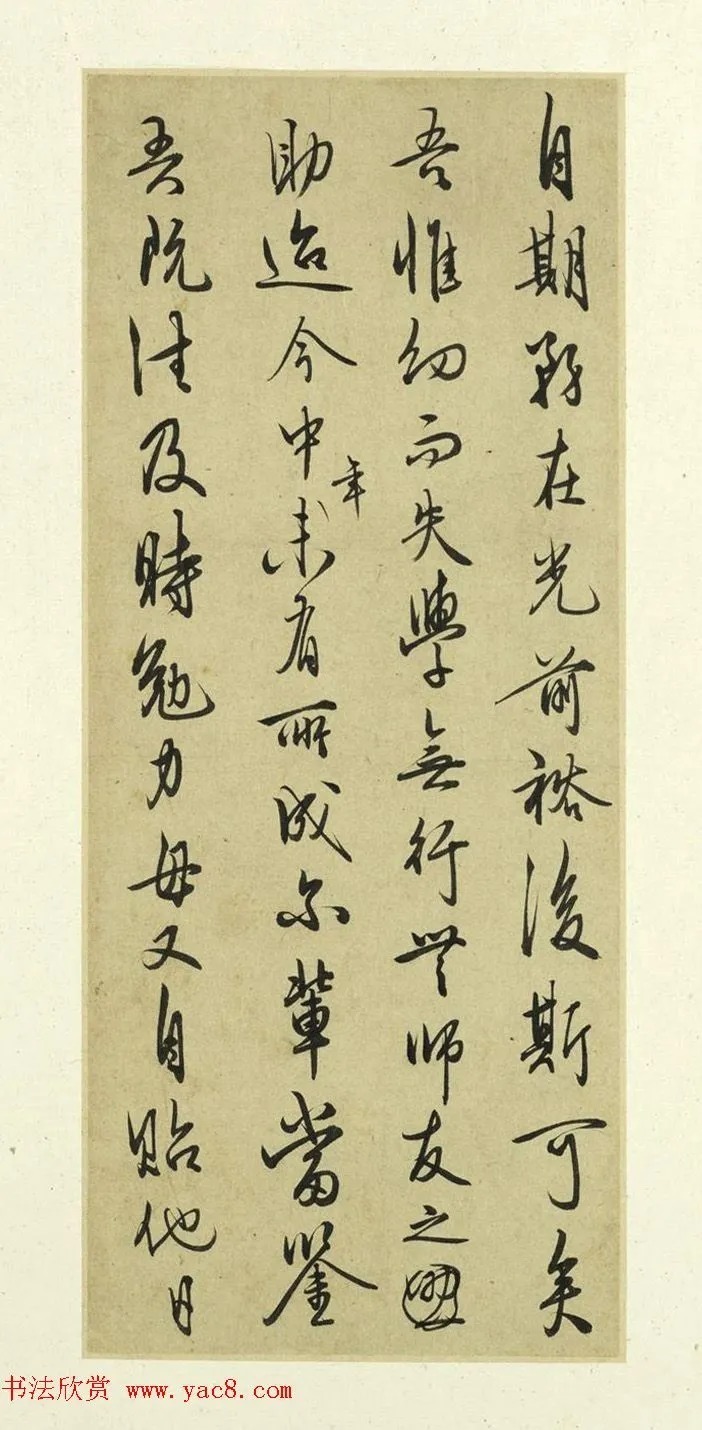 自期務在光前裕後斯可矣
吾惟幼而失學無行無師友之
助迨今中年未有所成尔輩當鑒
吾既往及時勉力毋又自貽他日
书法欣赏 www.yac8.com